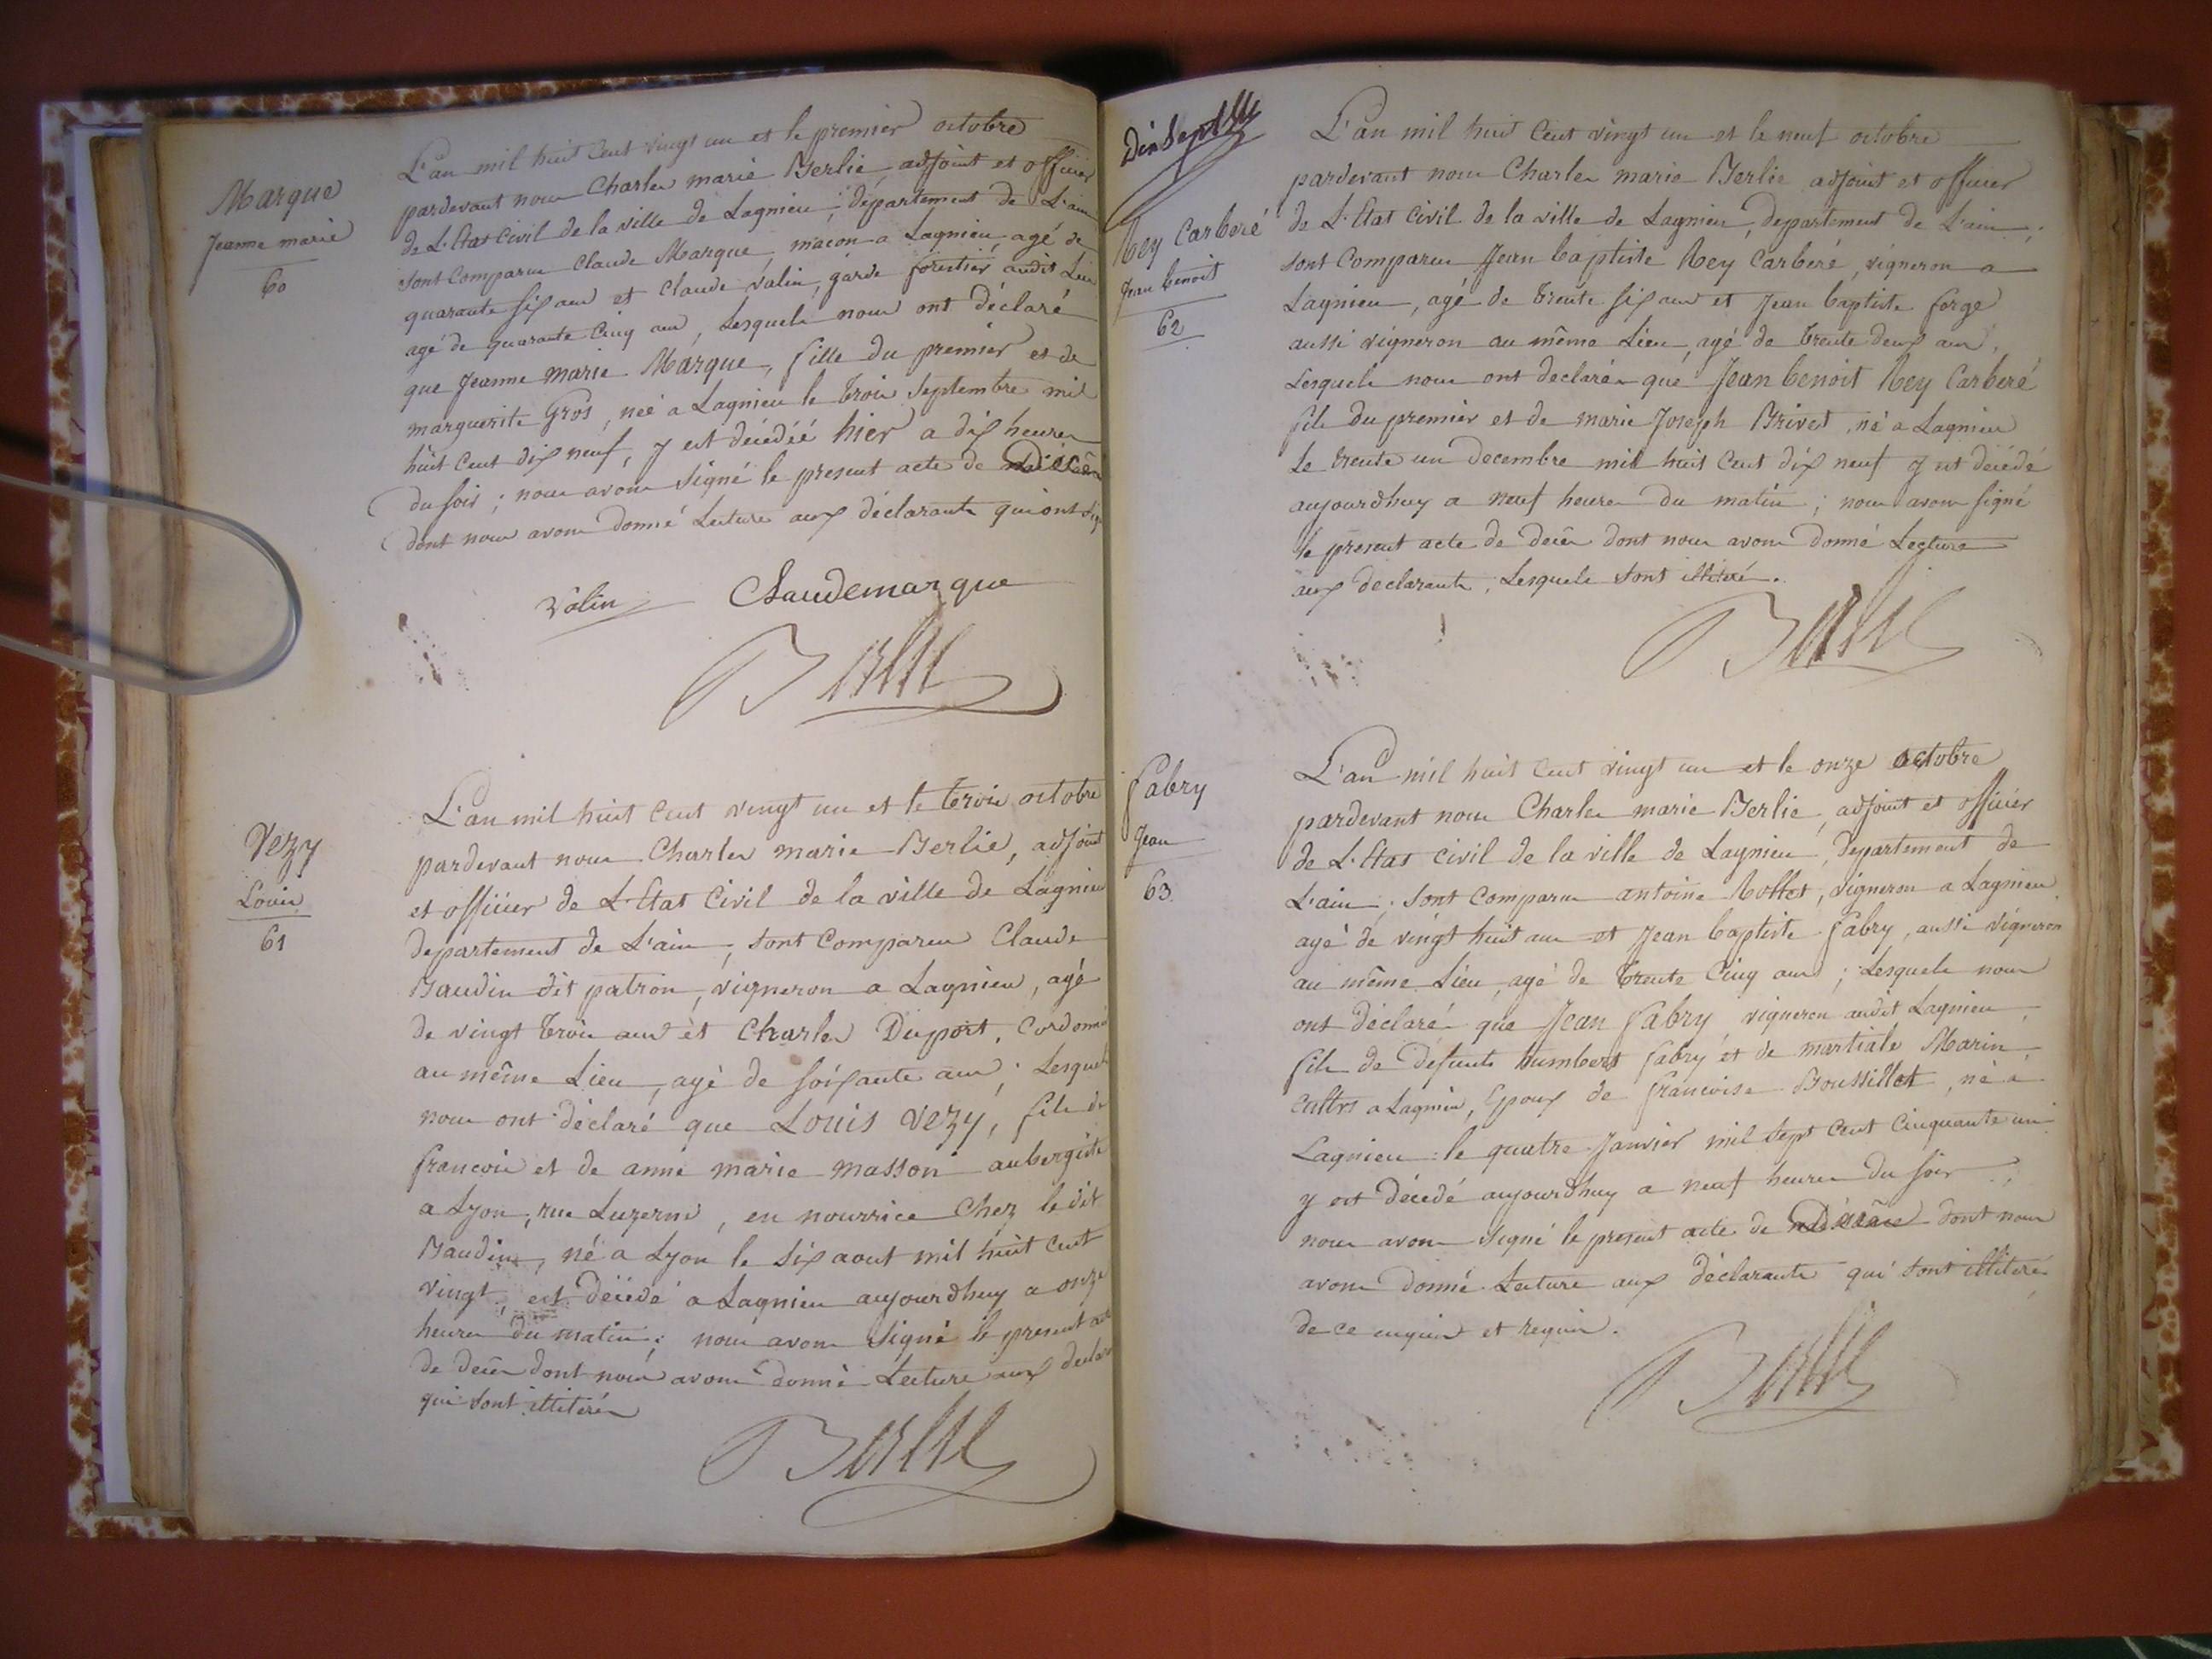 Marque
Jeanne marie
60
L'an mil huit Cent vingt un et le premier octobre
pardevant nous Charles marie Berlie, adjoint et officier
de L'Etat Civil de la ville de Lagnieu, département de L'ain
sont Comparus Claude Marque, maçon a Lagnieu, agé de
quarante six ans et Claude Valin, garde forestier audit Lieu
agé de quarante Cinq ans, Lesquels nous ont déclaré
que Jeanne marie Marque, fille du premier et de
marguerite Gros, née a Lagnieu le trois Septembre mil
huit Cent dix neuf, y est décédée hier a dix heures
du soir; nous avons signé le present acte de Décès
dont nous avons donné Lecture aux déclarants qui ont sig
Valin Claudemarque
Berlie
Vezy
Louis
61
L'an mil huit Cent vingt un et le trois octobre
pardevant nous Charles marie Berlie, adjoint
et officier de L'Etat Civil de la ville de Lagnieu
departement de L'ain, sont Comparus Claude
Baudin dit patron, vigneron a Lagnieu, agé
de vingt trois ans et Charles Duport, Cordonni
au même Lieu, agé de soixante ans; Lesquels
nous ont déclaré que Louis Vezy, fils de
francois et de anne marie masson aubergiste
a Lyon, rue Luzerne, en nourrice Chez ledit
Baudin, né a Lyon le six aout mil huit Cent
vingt, est décédé a Lagnieu aujourdhuy a onze
heures du matin; nous avons signé le present acte
de decès dont nous avons donné Lecture aux declar
qui sont illitérés
Berlie
Dix Sept
Rey Carberé
Jean benoit
62
L'an mil huit Cent vingt un et le neuf octobre
pardevant nous Charles marie Berlie adjoint et officier
de L'Etat Civil de la ville de Lagnieu, departement de L'ain;
sont Comparus Jean baptiste Rey Carberé, vigneron a
Lagnieu, agé de trente six ans et Jean baptiste forge
aussi vigneron au même Lieu, agé de trente deux ans,
Lesquels nous ont declarés que Jean benoit Rey Carberé
fils du premier et de marie Joseph Brivet, né a Lagnieu
le trente un decembre mil huit Cent dix neuf y est décédé
aujourdhuy a neuf heures du matin; nous avons signé
le present acte de decès dont nous avons donné Lecture
aux declarants, Lesquels sont illitérés.
Berlie
fabry
Jean
63
L'an mil huit Cent vingt un et le onze octobre
pardevant nous Charles marie Berlie, adjoint et officier
de L'Etat Civil de la ville de Lagnieu, Departement de
L'ain; sont Comparus antoine Rottet, vigneron a Lagnieu
agé de vingt huit ans et Jean baptiste fabry, aussi vigneron
au même Lieu, agé de trente Cinq ans; Lesquels nous
ont déclarés que Jean fabry, vigneron audit Lagnieu,
fils de défunts humbert fabry et de martiale Marin,
cultrs a Lagnieu, Epoux de francoise Boussillet, né a
Lagnieu le quatre Janvier mil sept Cent Cinquante un
y est décédé aujourdhuy a neuf heures du soir;
nous avons signé le present acte de Décès dont nous
avons donné Lecture aux déclarants qui sont illitérés
de ce enquis et requis.
Berlie